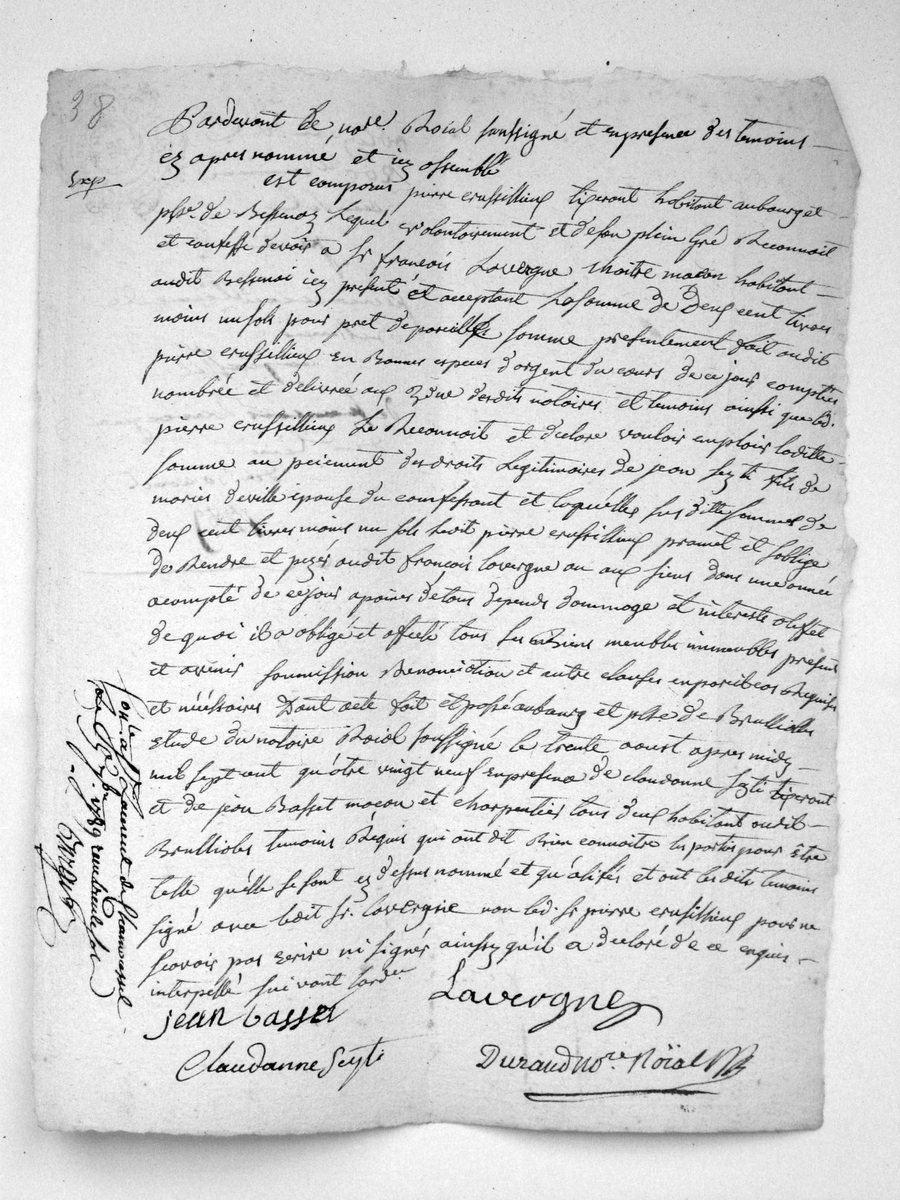 38
Exp
Pardevant Le nore. Roial soussigné et en presence des temoins
cy apres nommé et icy assemblé
est comparus pierre crussillieux tixerant habitant au bourg et
psse. de Bessenay Lequel volontairement et de son plein Gré Reconnoit
et confesse devoir a Sr francois Lavergne maitre macon habitant
audit Bessenai icy present et acceptant La somme de Deux cent livres
moins un sols pour pret de pareille somme presentement fait audit
pierre crussillieux en Bonnes especes d'argent du cours de ce jour comptés
nombrée et délivrée aux vue desdits notaires et temoins ainsi que led.
pierre crussillieux Le Reconnoit et déclare vouloir emploier laditte
somme au peiement des droits Legitimaires de jean fils de
maries deville épouse du confessant et laquelle susditte sommes de
deux cent livres moins un sols ledit pierre crussillieux promet et s'oblige
de Rendre et payer audit francois lavergne ou aux siens dans une année
a compté de ce jour a peines de tous depends dommage et interests a l'effet
de quoi il a obligé et affecté tous ses Biens meubles immeubles presents
et avenir soumission Renonciation et autre clauses en pareil cas Requises
et nécéssaires Dont acte fait et passé au bourg et psse de Brulliole
Etude du notaire Roial soussigné le trente aoust apres midy
mil sept cent quatre vingt neuf en presence de claudanne Seyti tixerant
et de jean Basset macon et charpentier tous deux habitant audit
Brulliole temoins Requis qui ont dit Bien connoitre les parties pour être
telle quelle se sont cy dessus nommé et qualifiés et ont lesdits temoins
signé avec ledit Sr. lavergne non led. Sr pierre crussillieux pour ne
scavoir pas ecrire ni signer ainssy qu'il a declaré de ce enquis
interpellé suivant lordce
jean basset Lavergne
Claudanne Seyti Durand nore. Roïal
1789